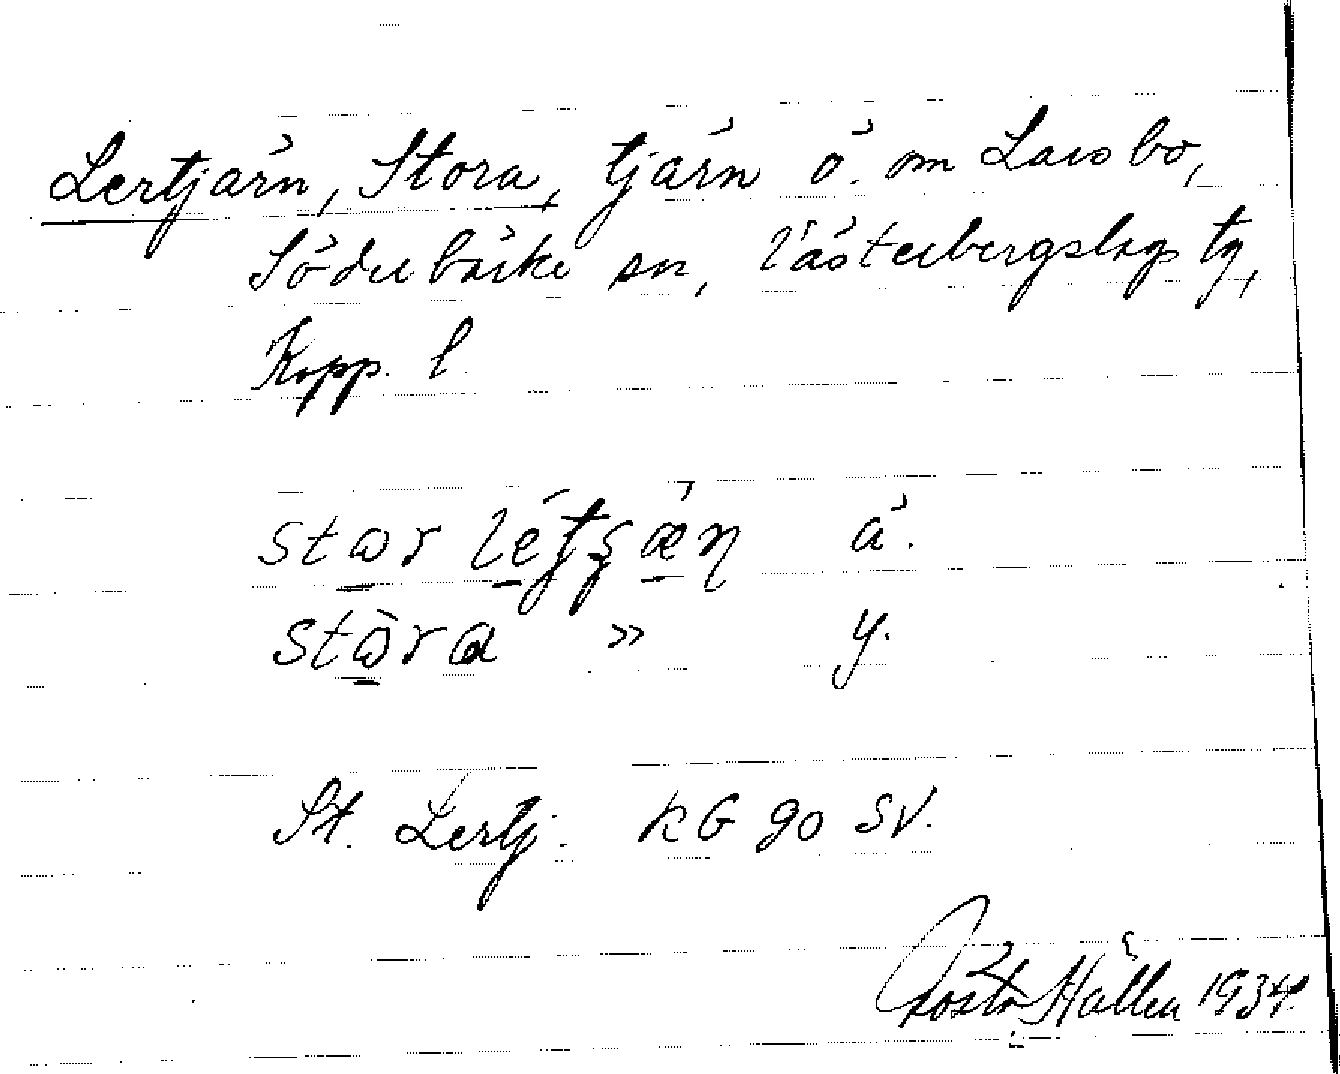 Lertjärn, Stora, tjärn ö. om Larsbo,
Söderbärke sn, Västerbergslags tg,
Kopp. l.
ä.
» y.
St. Lertj. KG 90 SV.
Gösta Hållen 1934.